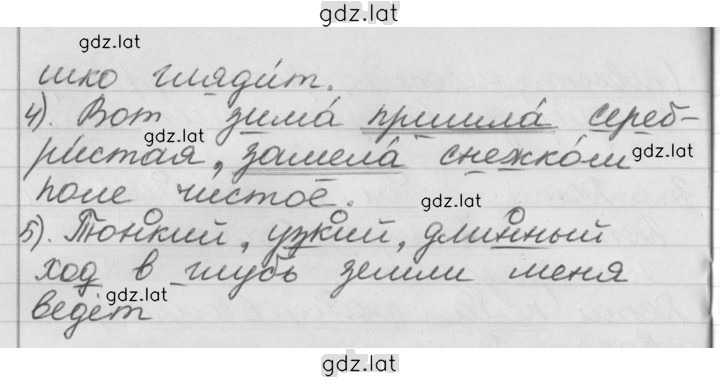 gdz.lat
gdz.lat
шко глядит.
4). Вот зима́ пришла́ сереб-
gdz.lat
ристая, замела́ снежко́м
gdz.lat
поле чистое.
gdz.lat
5). Тонкий, узкий, длинный
ход в глубь земли меня
gdz.lat
ведёт
gdz.lat